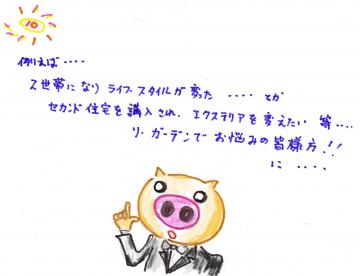 10
例えば‥‥
2世帯になり ライフ・スタイルが 変った ‥‥ とか
セカンド 住宅を 購入され、エクステリアを 変えたい 等‥‥
リ・ガーデンで お悩みの 皆様方!!
に ‥‥